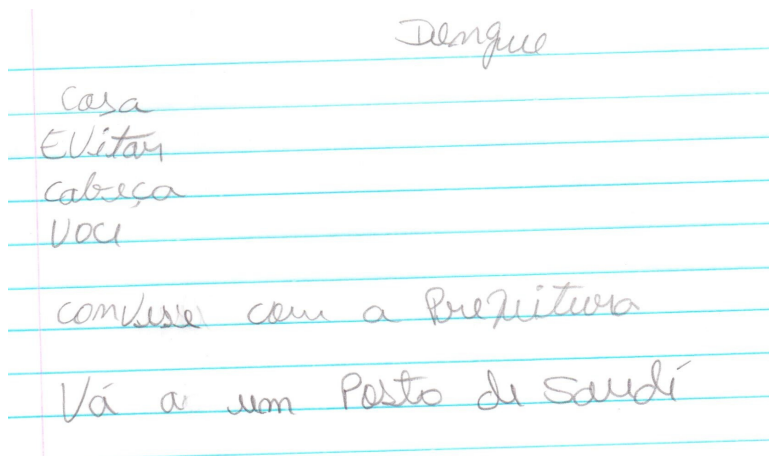 Dengue
Casa
EVitar
cabeça
Voce
converse com a Prefeitura
Vá a um Posto de Saudí